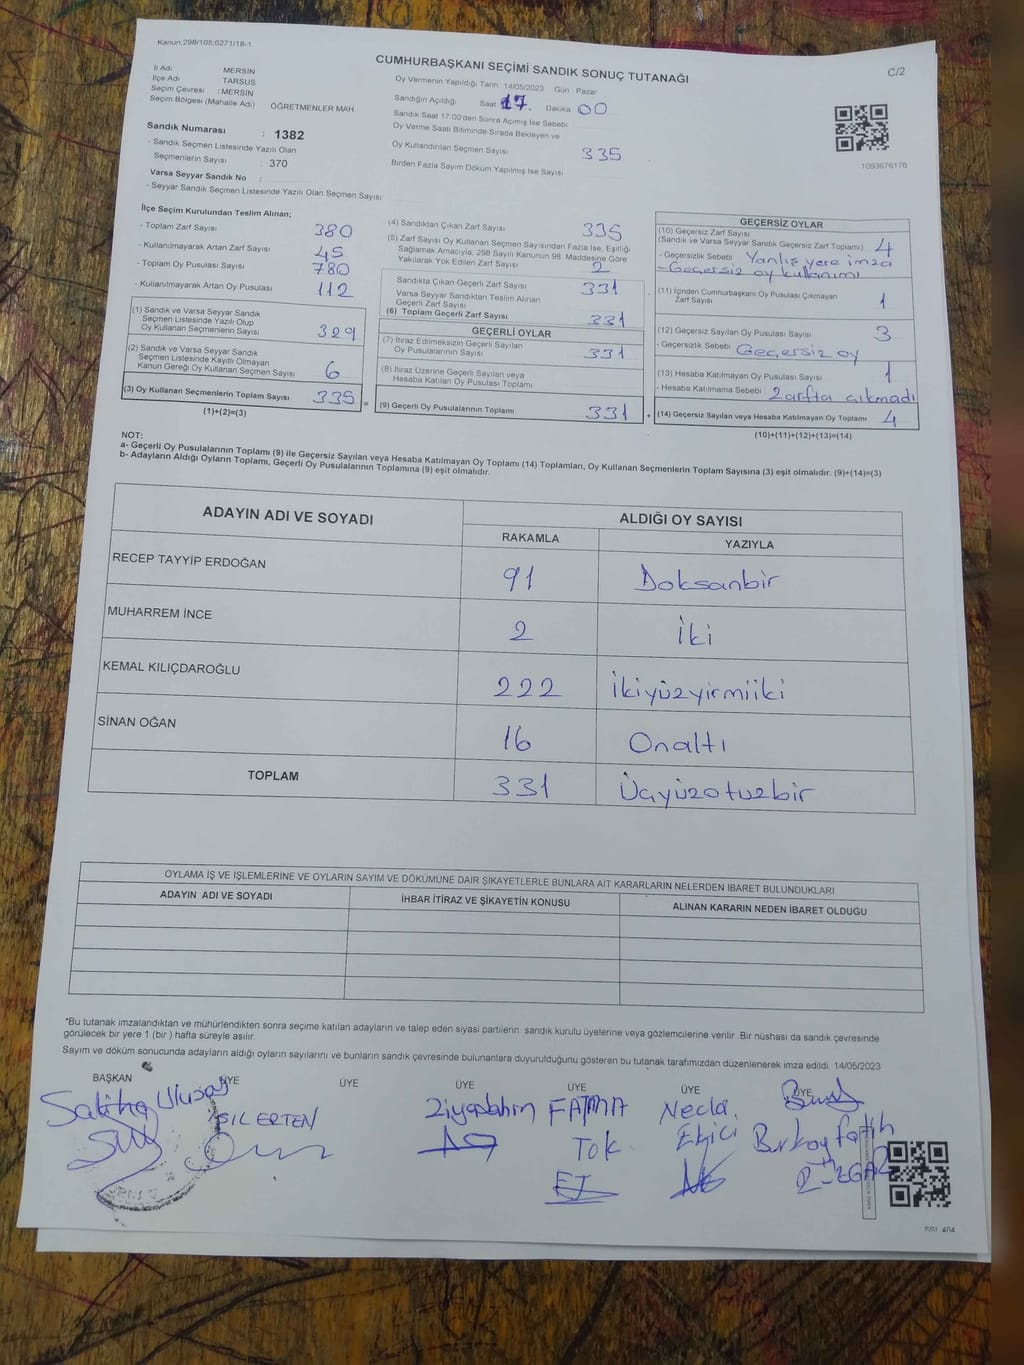 Kanun:298/105;6271/18-1
CUMHURBAŞKANI SEÇİMİ SANDIK SONUÇ TUTANAĞI
C/2
İl Adı MERSİN
İlçe Adı TARSUS
Seçim Çevresi : MERSİN
Seçim Bölgesi (Mahalle Adı) ÖĞRETMENLER MAH
Oy Vermenin Yapıldığı Tarih : 14/05/2023 Gün : Pazar
Sandığın Açıldığı Saat 17. Dakika 00
Sandık Saat 17:00'den Sonra Açımış İse Sebebi
Oy Verme Saati Bitiminde Sırada Bekleyen ve
Oy Kullandırılan Seçmen Sayısı 335
Birden Fazla Sayım Döküm Yapılmış İse Sayısı
1093676176
Sandık Numarası : 1382
- Sandık Seçmen Listesinde Yazılı Olan
Seçmenlerin Sayısı : 370
Varsa Seyyar Sandık No :
- Seyyar Sandık Seçmen Listesinde Yazılı Olan Seçmen Sayısı
İlçe Seçim Kurulundan Teslim Alınan;
- Toplam Zarf Sayısı 380
- Kullanılmayarak Artan Zarf Sayısı 45
- Toplam Oy Pusulası Sayısı 780
- Kullanılmayarak Artan Oy Pusulası 112
(1) Sandık ve Varsa Seyyar Sandık
Seçmen Listesinde Yazılı Olup
Oy Kullanan Seçmenlerin Sayısı 329
(2) Sandık ve Varsa Seyyar Sandık
Seçmen Listesinde Kayıtlı Olmayan
Kanun Gereği Oy Kullanan Seçmen Sayısı 6
(3) Oy Kullanan Seçmenlerin Toplam Sayısı 335 =
(1)+(2)=(3)
(4) Sandıktan Çıkan Zarf Sayısı 335
(5) Zarf Sayısı Oy Kullanan Seçmen Sayısından Fazla İse, Eşitliği
Sağlamak Amacıyla, 298 Sayılı Kanunun 98. Maddesine Göre
Yakılarak Yok Edilen Zarf Sayısı 2
Sandıkta Çıkan Geçerli Zarf Sayısı 331
Varsa Seyyar Sandıktan Teslim Alınan
Geçerli Zarf Sayısı
(6) Toplam Geçerli Zarf Sayısı 331
GEÇERLİ OYLAR
(7) İtiraz Edilmeksizin Geçerli Sayılan
Oy Pusulalarının Sayısı 331
(8) İtiraz Üzerine Geçerli Sayılan veya
Hesaba Katılan Oy Pusulası Toplamı
(9) Geçerli Oy Pusulalarının Toplamı 331 +
GEÇERSİZ OYLAR
(10) Geçersiz Zarf Sayısı 4
(Sandık ve Varsa Seyyar Sandık Geçersiz Zarf Toplamı)
- Geçersizlik Sebebi Yanlış yere imza
- Geçersiz oy kullanımı
(11) İçinden Cumhurbaşkanı Oy Pusulası Çıkmayan
Zarf Sayısı 1
(12) Geçersiz Sayılan Oy Pusulası Sayısı 3
- Geçersizlik Sebebi Geçersiz oy
(13) Hesaba Katılmayan Oy Pusulası Sayısı 1
- Hesaba Katılmama Sebebi Zarfta çıkmadı
(14) Geçersiz Sayılan veya Hesaba Katılmayan Oy Toplamı 4
(10)+(11)+(12)+(13)=(14)
NOT:
a- Geçerli Oy Pusulalarının Toplamı (9) ile Geçersiz Sayılan veya Hesaba Katılmayan Oy Toplamı (14) Toplamları, Oy Kullanan Seçmenlerin Toplam Sayısına (3) eşit olmalıdır. (9)+(14)=(3)
b- Adayların Aldığı Oyların Toplamı, Geçerli Oy Pusulalarının Toplamına (9) eşit olmalıdır.
ADAYIN ADI VE SOYADI
ALDIĞI OY SAYISI
RAKAMLA YAZIYLA
RECEP TAYYİP ERDOĞAN 91 Doksanbir
MUHARREM İNCE 2 İki
KEMAL KILIÇDAROĞLU 222 İkiyüzyirmiiki
SİNAN OĞAN 16 Onaltı
TOPLAM 331 Üçyüzotuzbir
OYLAMA İŞ VE İŞLEMLERİNE VE OYLARIN SAYIM VE DÖKÜMÜNE DAİR ŞİKAYETLERLE BUNLARA AİT KARARLARIN NELERDEN İBARET BULUNDUKLARI
ADAYIN ADI VE SOYADI İHBAR İTİRAZ VE ŞİKAYETİN KONUSU ALINAN KARARIN NEDEN İBARET OLDUĞU
*Bu tutanak imzalandıktan ve mühürlendikten sonra seçime katılan adayların ve talep eden siyasi partilerin sandık kurulu üyelerine veya gözlemcilerine verilir. Bir nüshası da sandık çevresinde
görülecek bir yere 1 (bir) hafta süreyle asılır.
Sayım ve döküm sonucunda adayların aldığı oyların sayılarını ve bunların sandık çevresinde bulunanlara duyurulduğunu gösteren bu tutanak tarafımızdan düzenlenerek imza edildi. 14/05/2023
BAŞKAN ÜYE ÜYE ÜYE ÜYE ÜYE ÜYE
Saliha Ulusoy
ERTEN
Ziya Şahin
FATMA
Tok
Necla
Ekici
Berkay Fatih
SSL 404